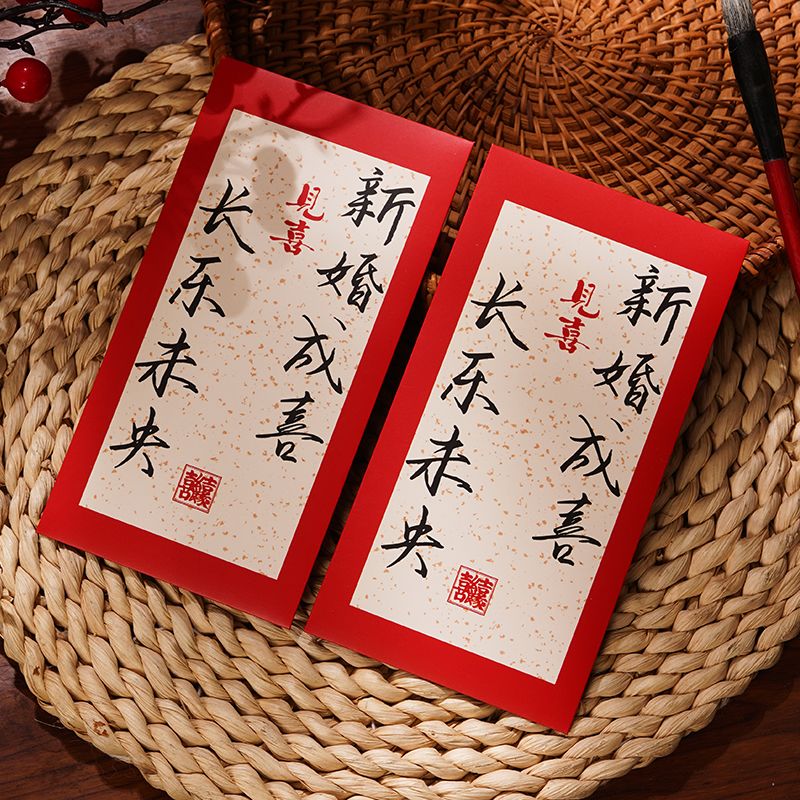 新婚成喜
见喜
长乐未央
新婚成喜
见喜
长乐未央